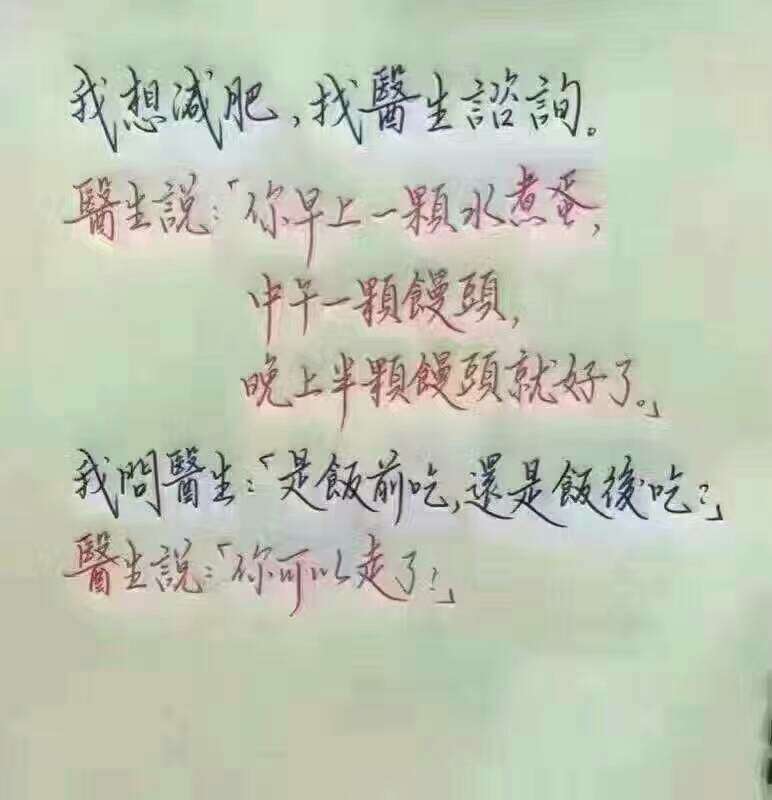 我想減肥，找醫生諮詢。
醫生說：「你早上一顆水煮蛋，
中午一顆饅頭，
晚上半顆饅頭就好了。」
我問醫生：「是飯前吃，還是飯後吃？」
醫生說：「你可以走了！」